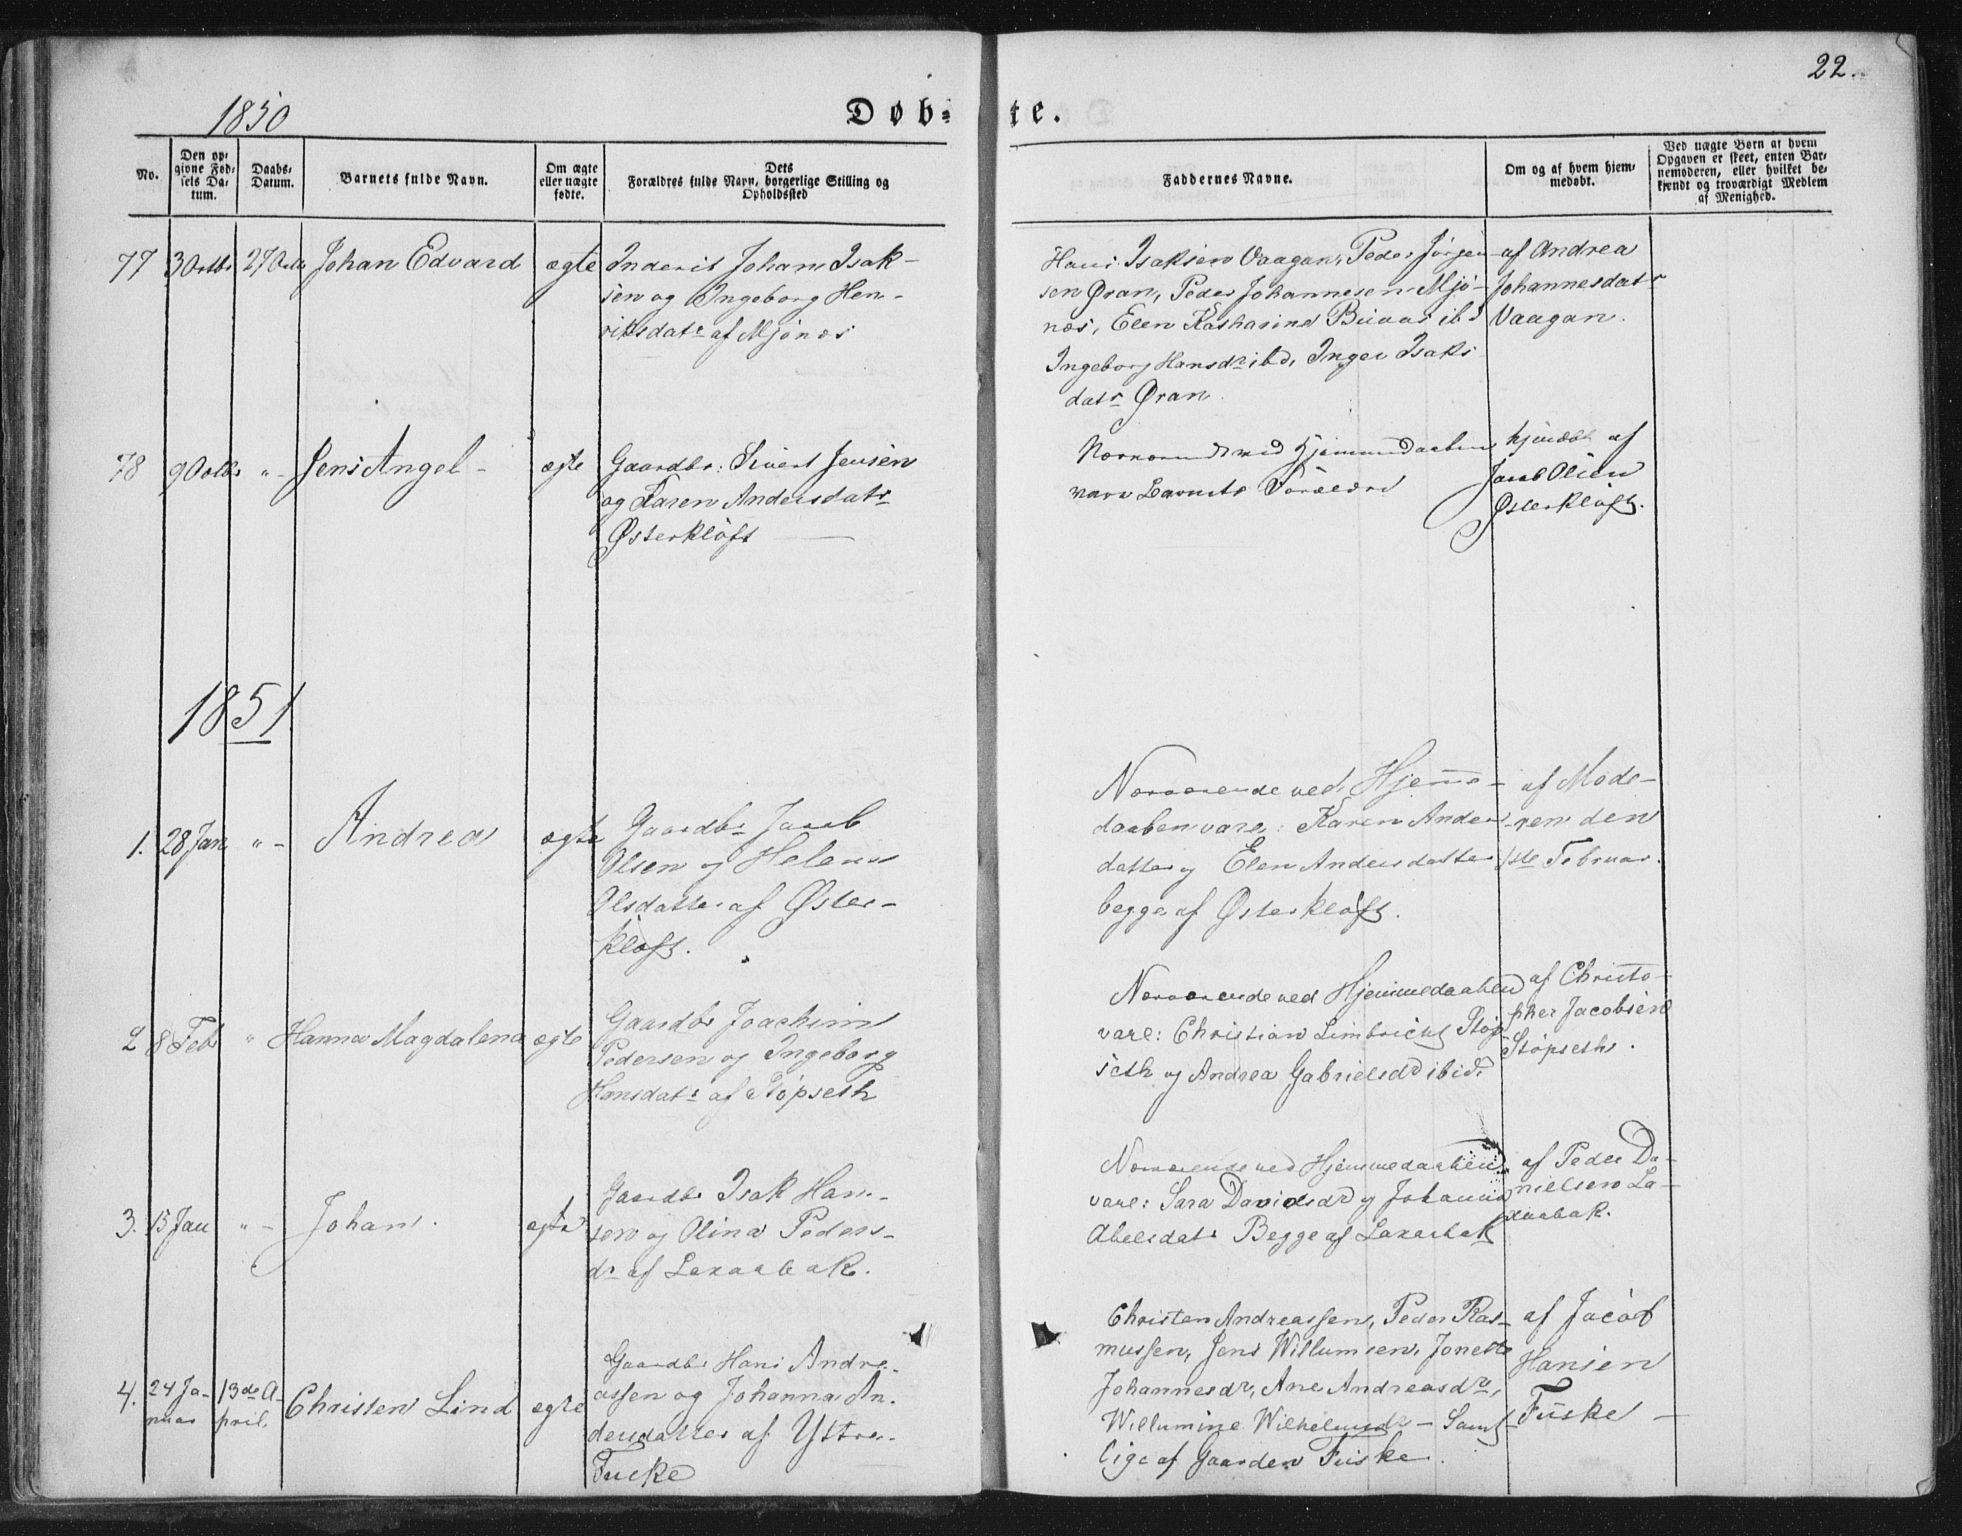 22.
1850
Døb-
te.
No.
Den op-
givne Fød-
sels Da-
tum.
Daabs-
Datum.
Barnets fulde Navn.
Om ægte
eller uægte
fødte.
Dets
Forældres fulde Navn, borgerlige Stilling og
Opholdssted
Faddernes Navne.
Om og af hvem hjem-
medøbt.
Ved uægte Børn at hvem
Opgaven er skeet, enten Bar-
nemoderen, eller hvilket be-
kjendt og troværdigt Medlem
af Menighed.
77 3 Octbr 27 Octb Johan Edvard ægte
Inderst Johan Isak-
sen og Ingeborg Hen-
riksdatr af Mjønes
Hans Isaksen Vaagan, Peder Jørgen-
sen Øran, Peder Johannesen Mjø-
næs, Elen Katharina ibd
Ingeborg Hansdr ibd, Inger Isaks
datr Øran.
af Andrea
Johannesdatr
Vaagan.
78 9 Octbr "- Jens Angel - ægte
Gaardbr: Sivert Jensen
og Karen Andersdatr
Østerkløft
Nærværende ved Hjemmedaaben
vare Barnets Forældre
hjmdøbt af
Jacob Olsen
Østerkløft.
1851
1. 28 Jan "- Andrea ægte
Gaardbr Jacob
Olsen og Helena
Olsdatter af Øster-
kløft.
Nærværende ved Hjemme-
daaben vare: Karen Anders
datter og Elen Andersdatter
begge af Østerkløft.
af Mode-
ren den
1ste Februar.
2 8 Feb " Hanna Magdalena ægte
Gaardbr Joachim
Pedersen og Ingeborg
Hansdatr af Støpseth
Nærværende ved Hjemmedaaben
vare: Christian Limbricht Støp
seth og Andrea Gabrielsdr ibid.
af Christo-
pher Jacobsen
Støpseth.
3. 15 Jan "- Johan. ægte
Gaardbr Isak Han-
sen og Olina Peders-
dr af Laxaabak.
Nærværende ved Hjemmedaaben
vare: Sara Davidsdr og Johanna
Abelsdatr Begge af Laxaabak
af Peder Da-
nielsen La-
xaabak.
4. 24 Ja-
nuar
13de A-
pril.
Christen Lind ægte
Gaardbr Hans Andre-
assen og Johanna An-
dersdatter af Ystre-
Fuske
Christen Andreassen, Peder Ras-
mussen, Jens Willumsen, Jonette
Johannesdr, Ane Andreasdr,
Willumine Wilhelmsdr - Samt
lige af Gaarden Fuske.
af Jacob
Hansen
Fuske -